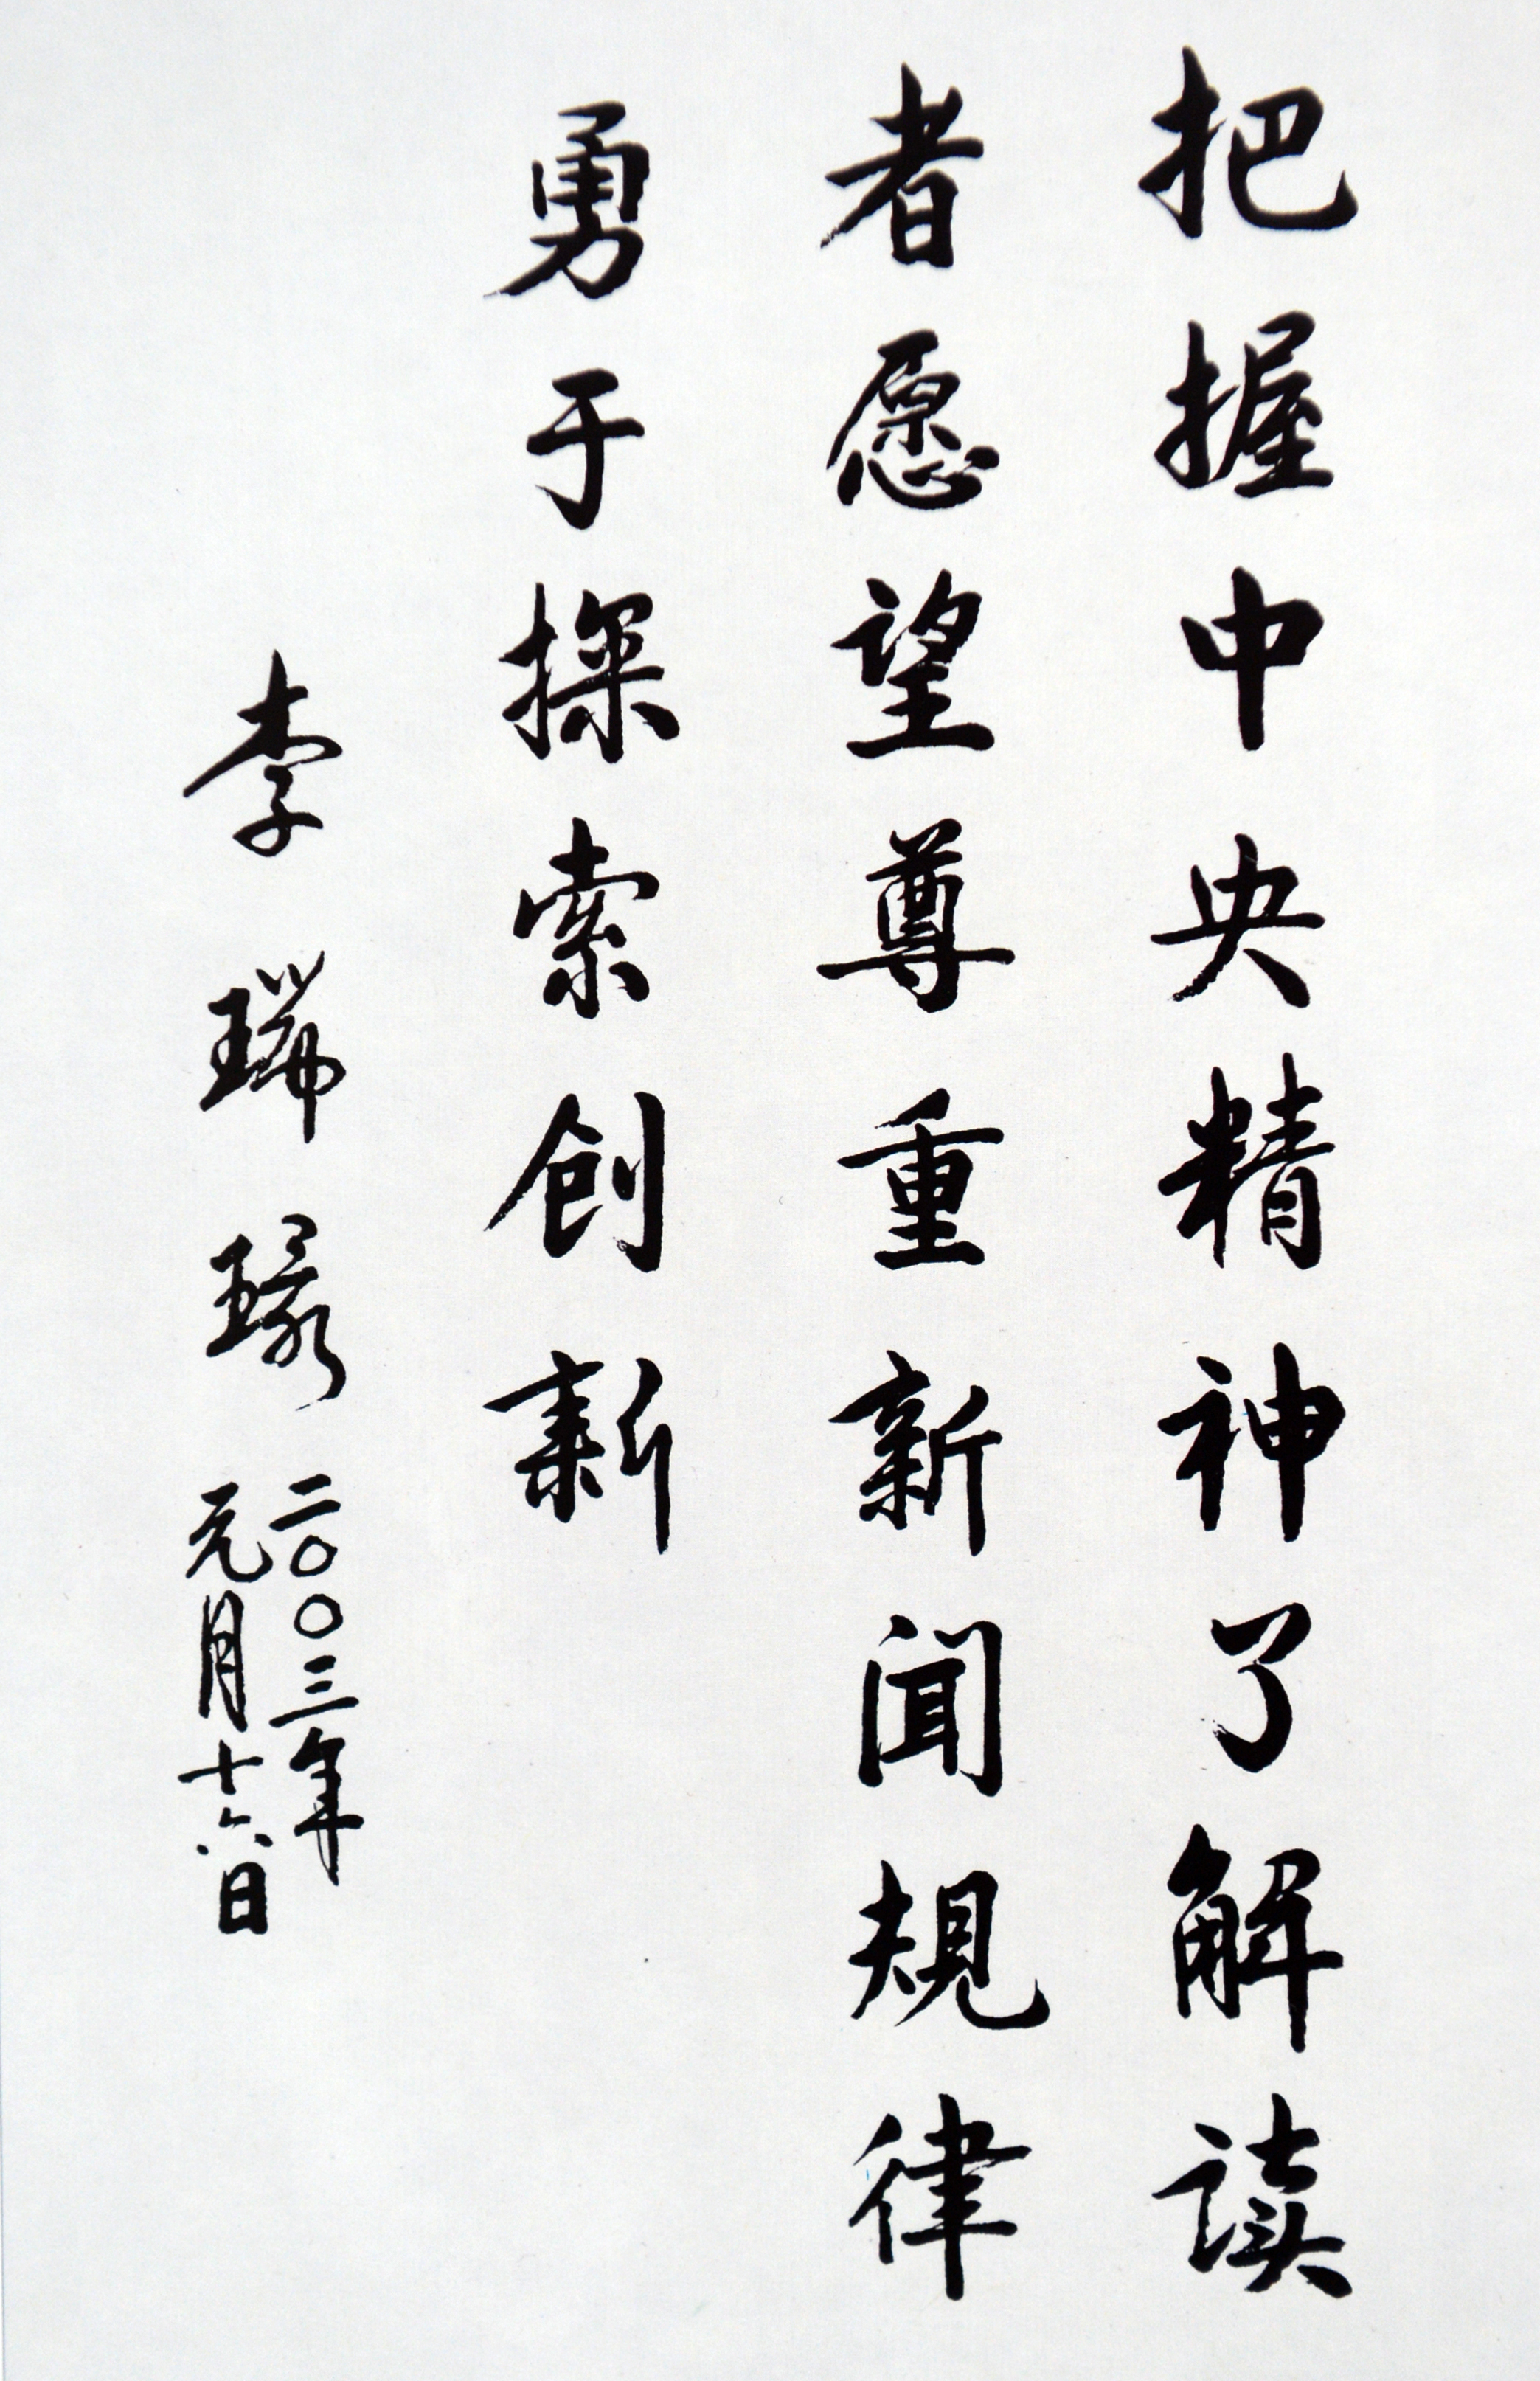 把握中央精神了解读
者愿望尊重新闻规律
勇于探索创新
李瑞環
二〇〇三年
元月十六日